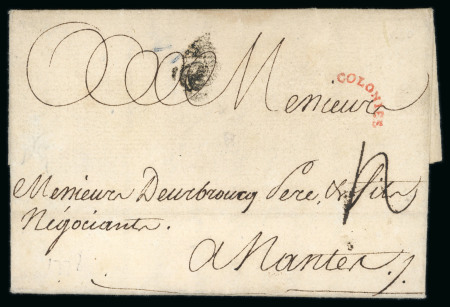 Messieurs
COLONIES
Messieurs Deurbroucq Pere & fils
Négociants.
a Nantes